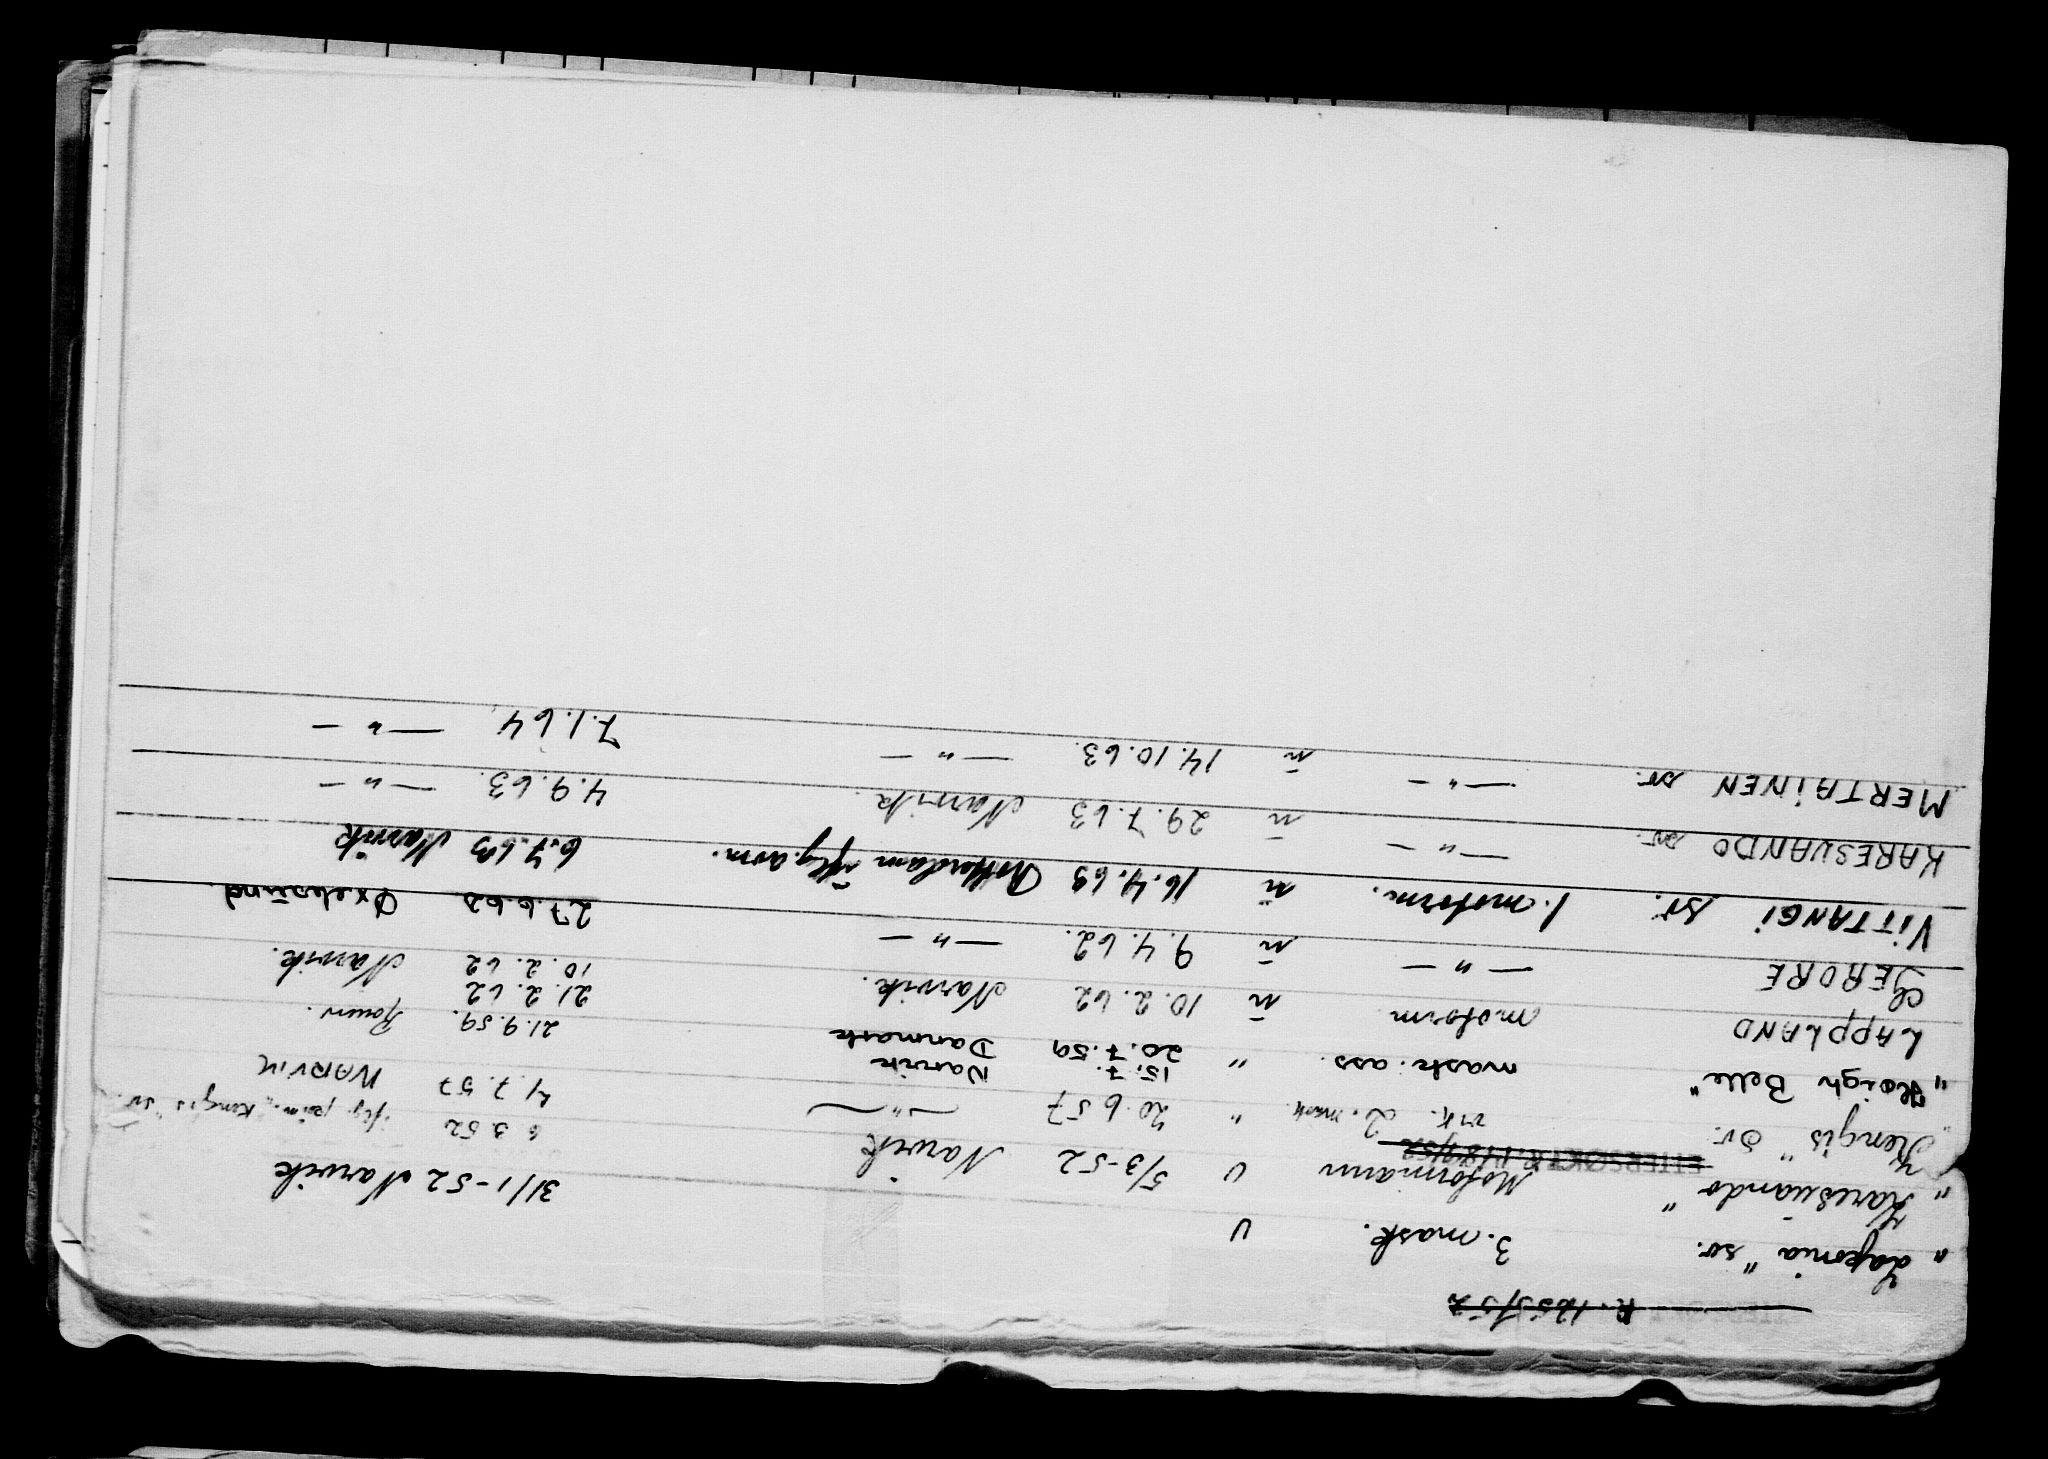 R. 1255/52
"Laponia" sv. 3. mask. U 31/1-52 Narvik
"Karesuando" Motormann U 5/3-52 Narvik 6 3.52
ETTERSØKT R.
"Kengis" sv. 2. mask. " 20.6 57 —"— 4.7.57 NARVIK
"Raigh Belle" mask. ass. " 15.7. 20.7.59 Narvik Danmark 21.9.59.
LAPPLAND motorm ü 10.2.62 Narvik. 21.2.62 10.2.62 Narvik.
—"— ü 9.4.62. —"— 27.6.62 Oxelsünd.
VITTANGI sv. 1. motorm. ü 16.4.63 Rotterdam 6.7.63 Narvik
KARESUANDO sv. —"— ü 29.7.63 Narvik. 4.9.63. —"—
MERTAINEN sv. —"— ü 14.10.63. —"— 7.1.64 —"—